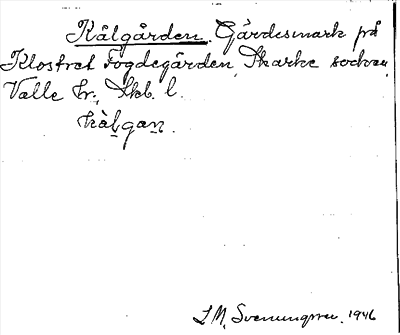 Kålgården. Gärdesmark på
Klostret Fogdegården, Skarke socken,
Valle hr., Skb. l.
kàlgan.
S.M. Svenungsson. 1946